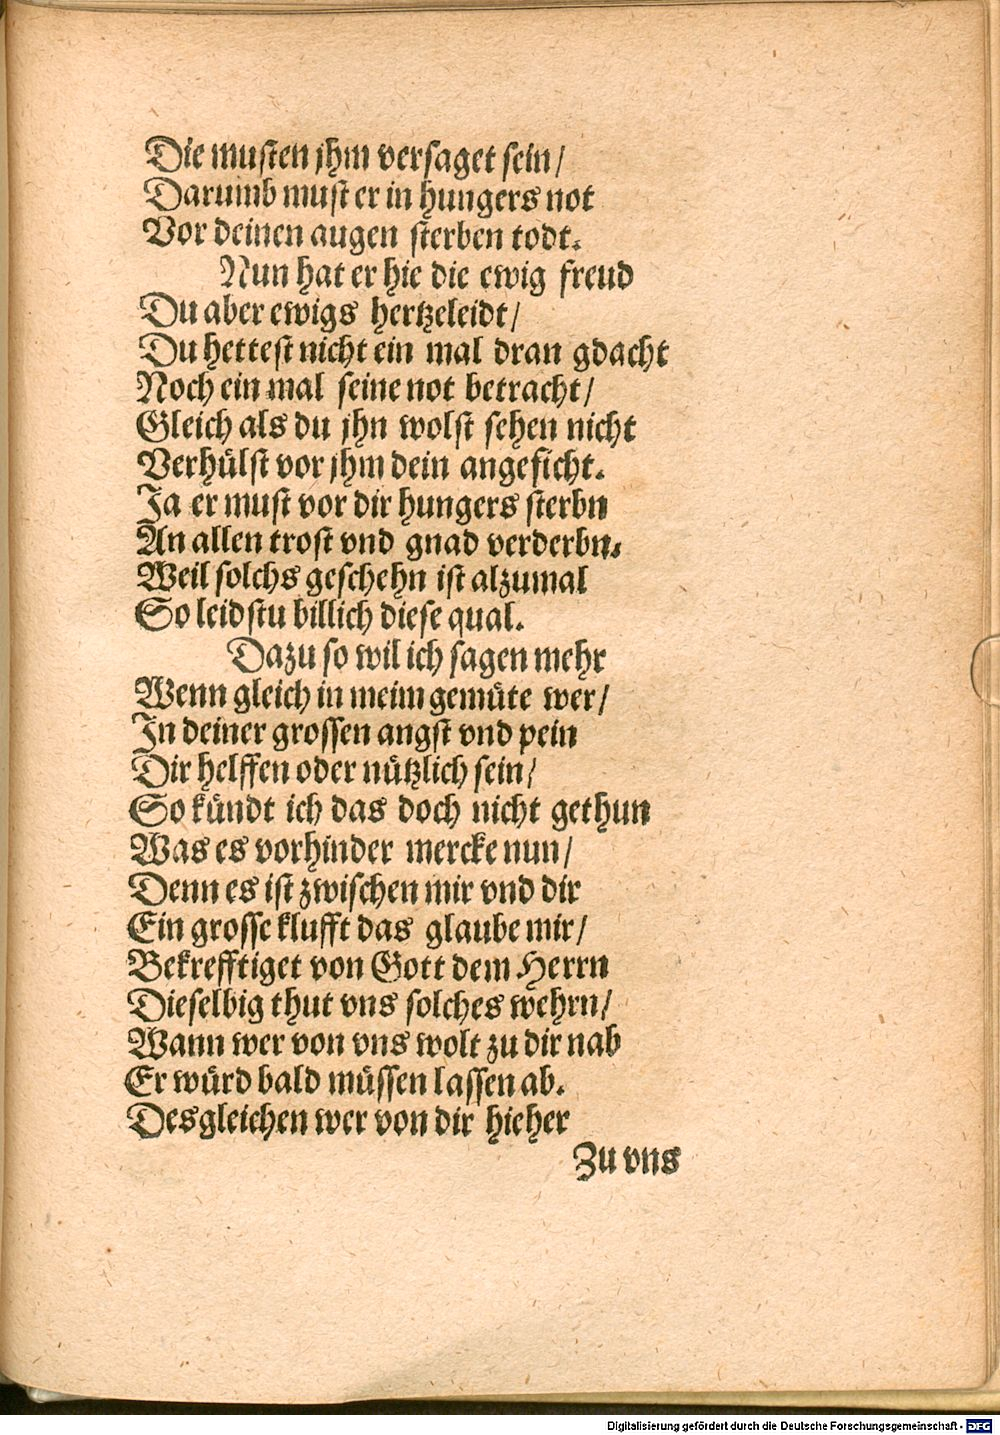 Die musten jhm versaget sein/
Darumb must er in hungers not
Vor deinen augen sterben todt.
Nun hat er hie die ewig freud
Du aber ewigs hertzeleidt/
Du hettest nicht ein mal dran gdacht
Noch ein mal seine not betracht/
Gleich als du jhn wolst sehen nicht
Verhülst vor jhm dein angesicht.
Ja er must vor dir hungers sterbn
An allen trost vnd gnad verderbn.
Weil solchs geschehn ist alzumal
So leidstu billich diese qual.
Dazu so wil ich sagen mehr
Wenn gleich in meim gemüte wer/
In deiner grossen angst vnd pein
Dir helffen oder nützlich sein/
So kündt ich das doch nicht gethun
Was es vorhinder mercke nun/
Denn es ist zwischen mir vnd dir
Ein grosse klufft das glaube mir/
Bekrefftiget von Gott dem Herrn
Dieselbig thut vns solches wehrn/
Wann wer von vns wolt zu dir nab
Er würd bald müssen lassen ab.
Desgleichen wer von dir hieher
Zu vns
Digitalisierung gefördert durch die Deutsche Forschungsgemeinschaft - DFG